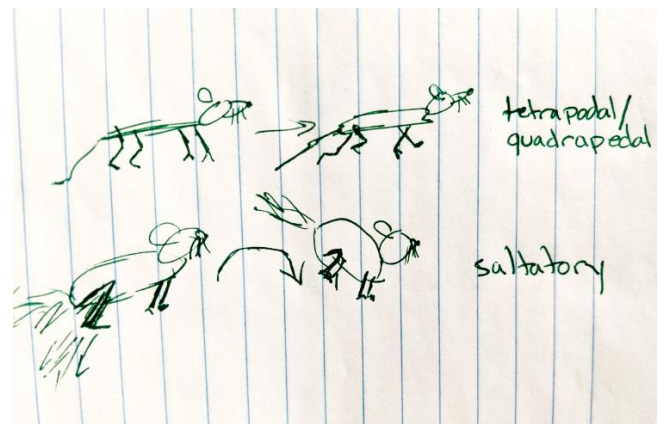 tetrapodal/
quadrapedal
saltatory